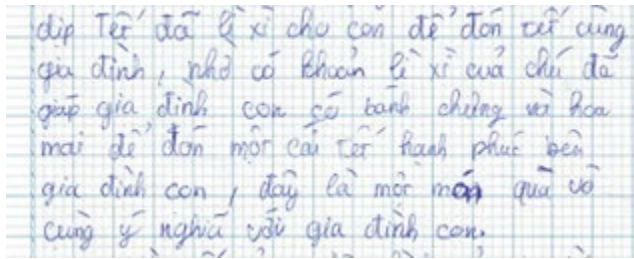 dịp Tết đã lì xì cho con để đón tết cùng
gia đình, nhờ có khoản lì xì của chú đã
giúp gia đình con có bánh chưng và hoa
mai để đón một cái tết hạnh phúc bên
gia đình con, đây là một món quà vô
cùng ý nghĩa với gia đình con.